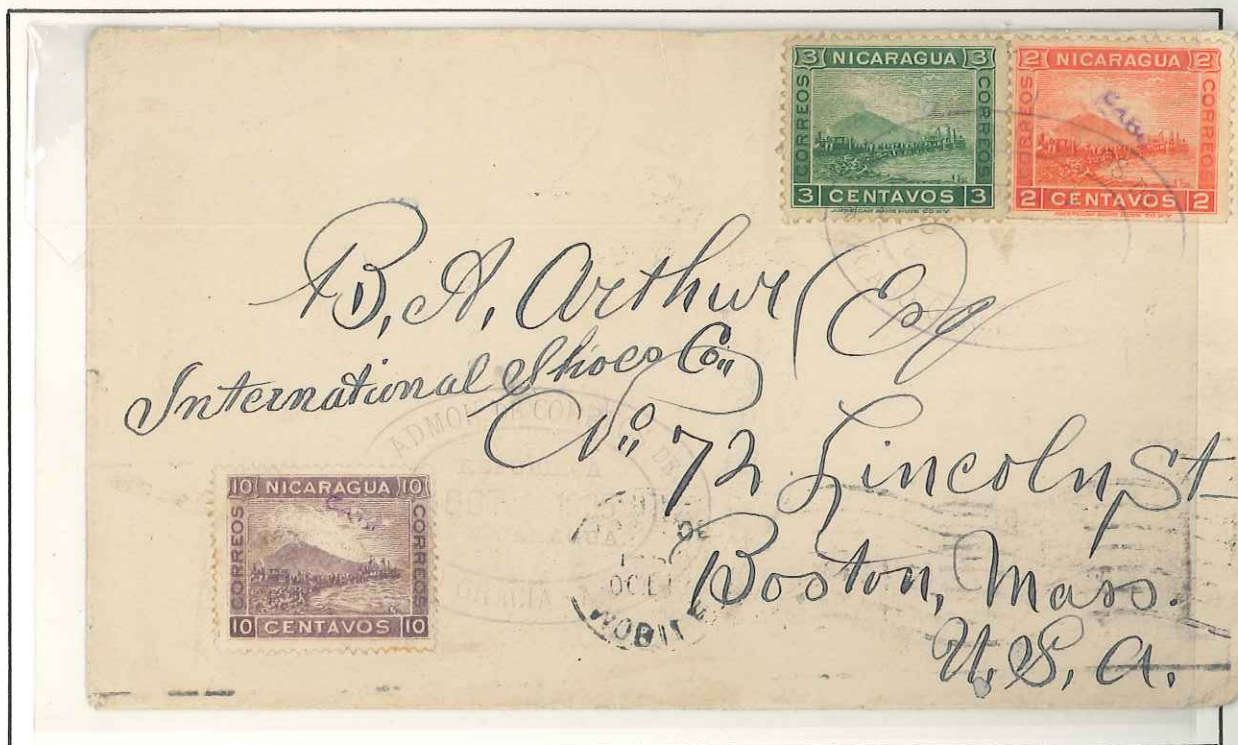 3 NICARAGUA 3
CORREOS
CORREOS
3 CENTAVOS 3
AMERICAN BANK NOTE CO. N.Y.
2 NICARAGUA 2
CORREOS
CORREOS
2 CENTAVOS 2
AMERICAN BANK NOTE CO. N.Y.
B. A. Arthur Esq
International Shoes Co.
No. 72 Lincoln St
Boston, Mass.
U. S. A.
10 NICARAGUA 10
CORREOS
CORREOS
10 CENTAVOS 10
ADMON DE CORREOS DE
MOBILE